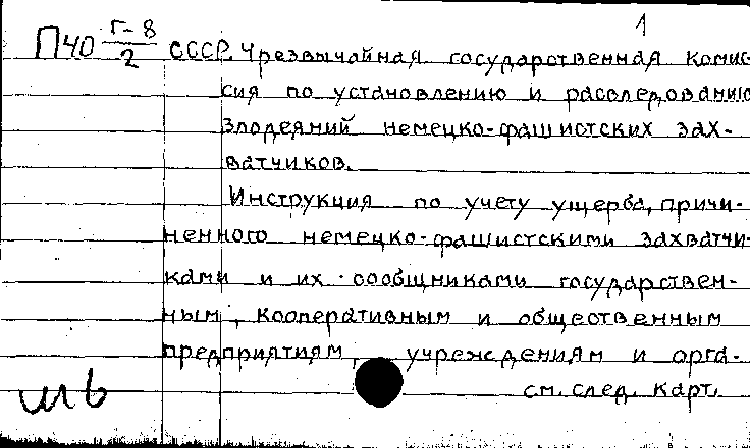 1
П40 Г-8/2 СССР. Чрезвычайная государственная комис-
сия по установлению и расследованию
злодеяний немецко-фашистских зах-
ватчиков.
Инструкция по учету ущерба, причи-
ненного немецко-фашистскими захватчи-
ками и их сообщниками государствен-
ным, кооперативным и общественным
предприятиям, учреждениям и орга-
см. след. карт.